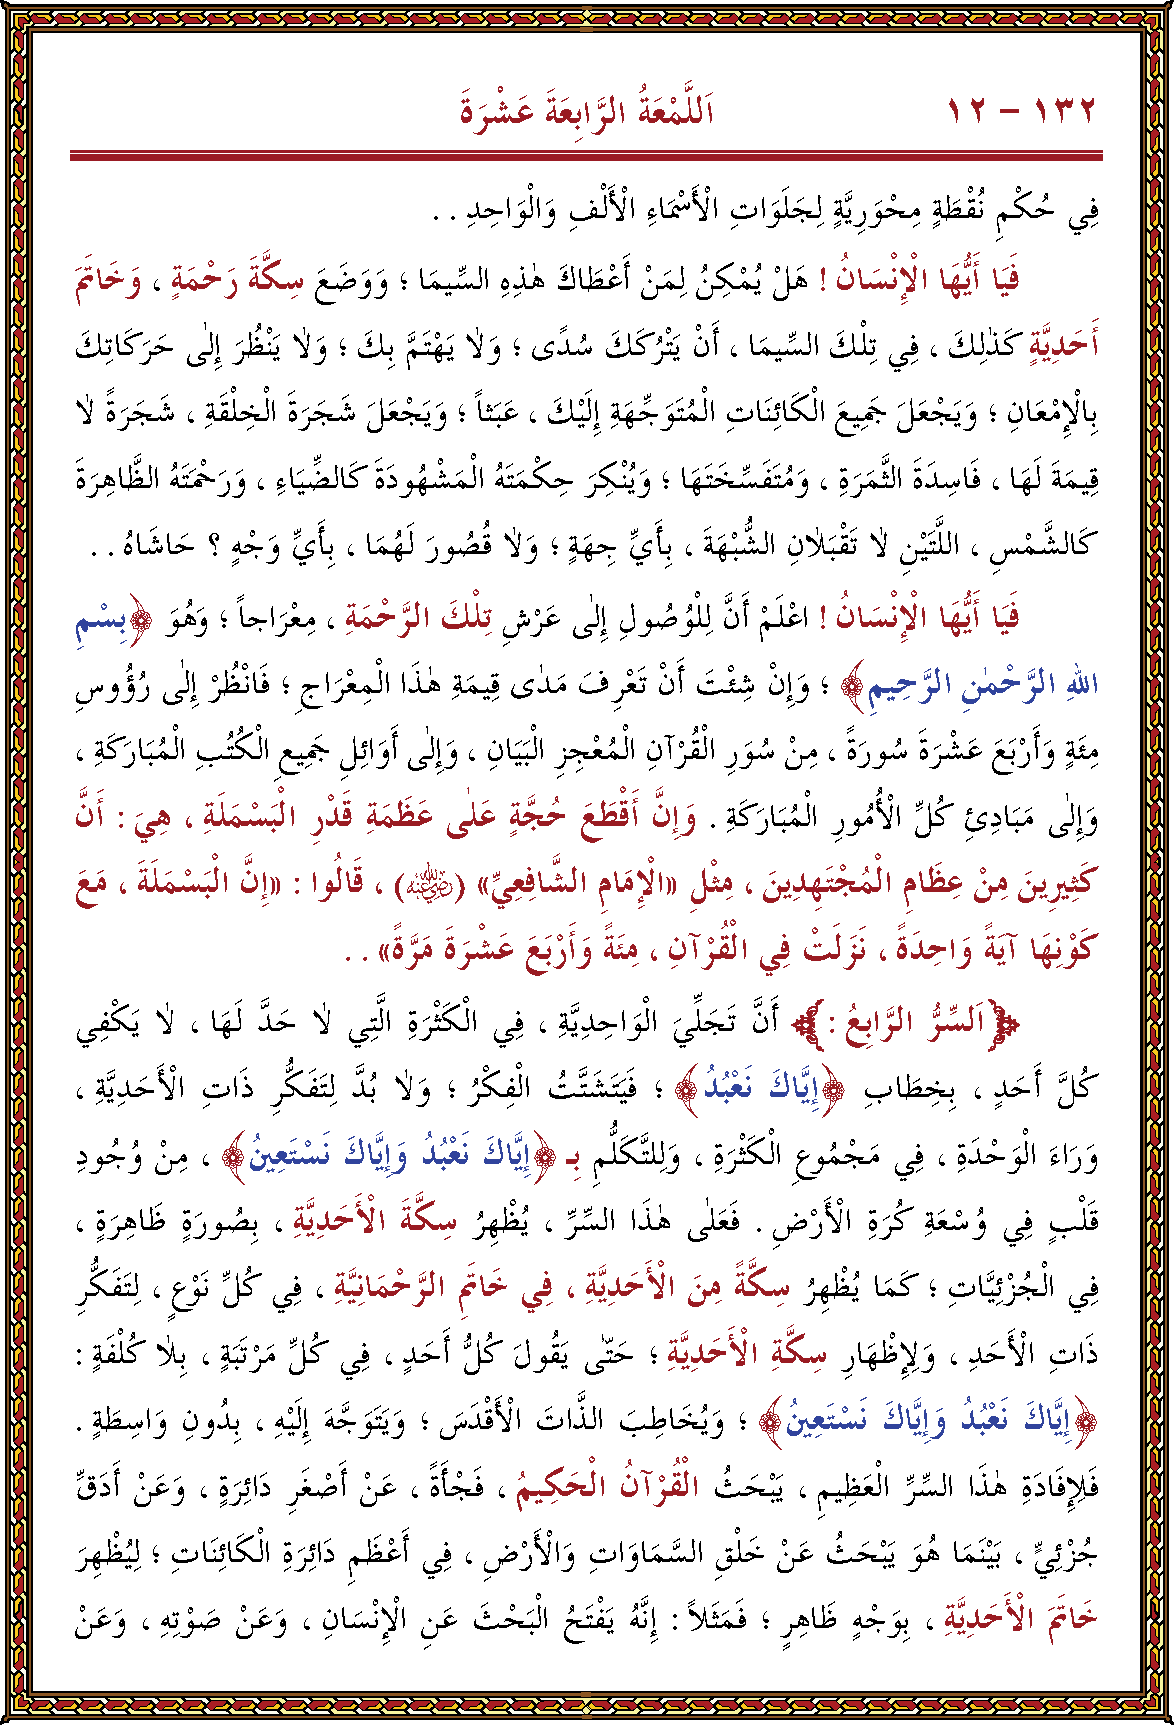 ١٣٢ – ١٢ اَللَّمْعَةُ الرَّابِعَةَ عَشْرَةَ
فِي حُكْمِ نُقْطَةٍ مِحْوَرِيَّةٍ لِجَلَوَاتِ الْأَسْمَاءِ الْأَلْفِ وَالْوَاحِدِ . .
فَيَا أَيُّهَا الْإِنْسَانُ ! هَلْ يُمْكِنُ لِمَنْ أَعْطَاكَ هٰذِهِ السِّيمَا ؛ وَوَضَعَ سِكَّةَ رَحْمَةٍ ، وَخَاتَمَ
أَحَدِيَّةٍ كَذٰلِكَ ، فِي تِلْكَ السِّيمَا ، أَنْ يَتْرُكَكَ سُدًى ؛ وَلَا يَهْتَمَّ بِكَ ؛ وَلَا يَنْظُرَ إِلٰى حَرَكَاتِكَ
بِالْإِمْعَانِ ؛ وَيَجْعَلَ جَمِيعَ الْكَائِنَاتِ الْمُتَوَجِّهَةِ إِلَيْكَ ، عَبَثاً ؛ وَيَجْعَلَ شَجَرَةَ الْخِلْقَةِ ، شَجَرَةً لَا
قِيمَةَ لَهَا ، فَاسِدَةَ الثَّمَرَةِ ، وَمُتَفَسِّخَتَهَا ؛ وَيُنْكِرَ حِكْمَتَهُ الْمَشْهُودَةَ كَالضِّيَاءِ ، وَرَحْمَتَهُ الظَّاهِرَةَ
كَالشَّمْسِ ، اللَّتَيْنِ لَا تَقْبَلَانِ الشُّبْهَةَ ، بِأَيِّ جِهَةٍ ؛ وَلَا قُصُورَ لَهُمَا ، بِأَيِّ وَجْهٍ ؟ حَاشَاهُ . .
فَيَا أَيُّهَا الْإِنْسَانُ ! اعْلَمْ أَنَّ لِلْوُصُولِ إِلٰى عَرْشِ تِلْكَ الرَّحْمَةِ ، مِعْرَاجاً ؛ وَهُوَ ﴿بِسْمِ
اللهِ الرَّحْمٰنِ الرَّحِيمِ﴾ ؛ وَإِنْ شِئْتَ أَنْ تَعْرِفَ مَدٰى قِيمَةِ هٰذَا الْمِعْرَاجِ ؛ فَانْظُرْ إِلٰى رُؤُوسِ
مِئَةٍ وَأَرْبَعَ عَشْرَةَ سُورَةً ، مِنْ سُوَرِ الْقُرْآنِ الْمُعْجِزِ الْبَيَانِ ، وَإِلٰى أَوَائِلِ جَمِيعِ الْكُتُبِ الْمُبَارَكَةِ ،
وَإِلٰى مَبَادِئِ كُلِّ الْأُمُورِ الْمُبَارَكَةِ . وَإِنَّ أَقْطَعَ حُجَّةٍ عَلٰى عَظَمَةِ قَدْرِ الْبَسْمَلَةِ ، هِيَ : أَنَّ
كَثِيرِينَ مِنْ عِظَامِ الْمُجْتَهِدِينَ ، مِثْلِ «الْإِمَامِ الشَّافِعِيِّ» (رضي الله عنه) ، قَالُوا : «إِنَّ الْبَسْمَلَةَ ، مَعَ
كَوْنِهَا آيَةً وَاحِدَةً ، نَزَلَتْ فِي الْقُرْآنِ ، مِئَةً وَأَرْبَعَ عَشْرَةَ مَرَّةً» . .
﴿اَلسِّرُّ الرَّابِعُ :﴾ أَنَّ تَجَلِّيَ الْوَاحِدِيَّةِ ، فِي الْكَثْرَةِ الَّتِي لَا حَدَّ لَهَا ، لَا يَكْفِي
كُلَّ أَحَدٍ ، بِخِطَابِ ﴿إِيَّاكَ نَعْبُدُ﴾ ؛ فَيَتَشَتَّتُ الْفِكْرُ ؛ وَلَا بُدَّ لِتَفَكُّرِ ذَاتِ الْأَحَدِيَّةِ ،
وَرَاءَ الْوَحْدَةِ ، فِي مَجْمُوعِ الْكَثْرَةِ ، وَلِلتَّكَلُّمِ بِـ ﴿إِيَّاكَ نَعْبُدُ وَإِيَّاكَ نَسْتَعِينُ﴾ ، مِنْ وُجُودِ
قَلْبٍ فِي وُسْعَةِ كُرَةِ الْأَرْضِ . فَعَلٰى هٰذَا السِّرِّ ، يُظْهِرُ سِكَّةَ الْأَحَدِيَّةِ ، بِصُورَةٍ ظَاهِرَةٍ ،
فِي الْجُزْئِيَّاتِ ؛ كَمَا يُظْهِرُ سِكَّةً مِنَ الْأَحَدِيَّةِ ، فِي خَاتَمِ الرَّحْمَانِيَّةِ ، فِي كُلِّ نَوْعٍ ، لِتَفَكُّرِ
ذَاتِ الْأَحَدِ ، وَلِإِظْهَارِ سِكَّةِ الْأَحَدِيَّةِ ؛ حَتّٰى يَقُولَ كُلُّ أَحَدٍ ، فِي كُلِّ مَرْتَبَةٍ ، بِلَا كُلْفَةٍ :
﴿إِيَّاكَ نَعْبُدُ وَإِيَّاكَ نَسْتَعِينُ﴾ ؛ وَيُخَاطِبَ الذَّاتَ الْأَقْدَسَ ؛ وَيَتَوَجَّهَ إِلَيْهِ ، بِدُونِ وَاسِطَةٍ .
فَلِإِفَادَةِ هٰذَا السِّرِّ الْعَظِيمِ ، يَبْحَثُ الْقُرْآنُ الْحَكِيمُ ، فَجْأَةً ، عَنْ أَصْغَرِ دَائِرَةٍ ، وَعَنْ أَدَقِّ
جُزْئِيٍّ ، بَيْنَمَا هُوَ يَبْحَثُ عَنْ خَلْقِ السَّمَاوَاتِ وَالْأَرْضِ ، فِي أَعْظَمِ دَائِرَةِ الْكَائِنَاتِ ؛ لِيُظْهِرَ
خَاتَمَ الْأَحَدِيَّةِ ، بِوَجْهٍ ظَاهِرٍ ؛ فَمَثَلاً : إِنَّهُ يَفْتَحُ الْبَحْثَ عَنِ الْإِنْسَانِ ، وَعَنْ صَوْتِهِ ، وَعَنْ